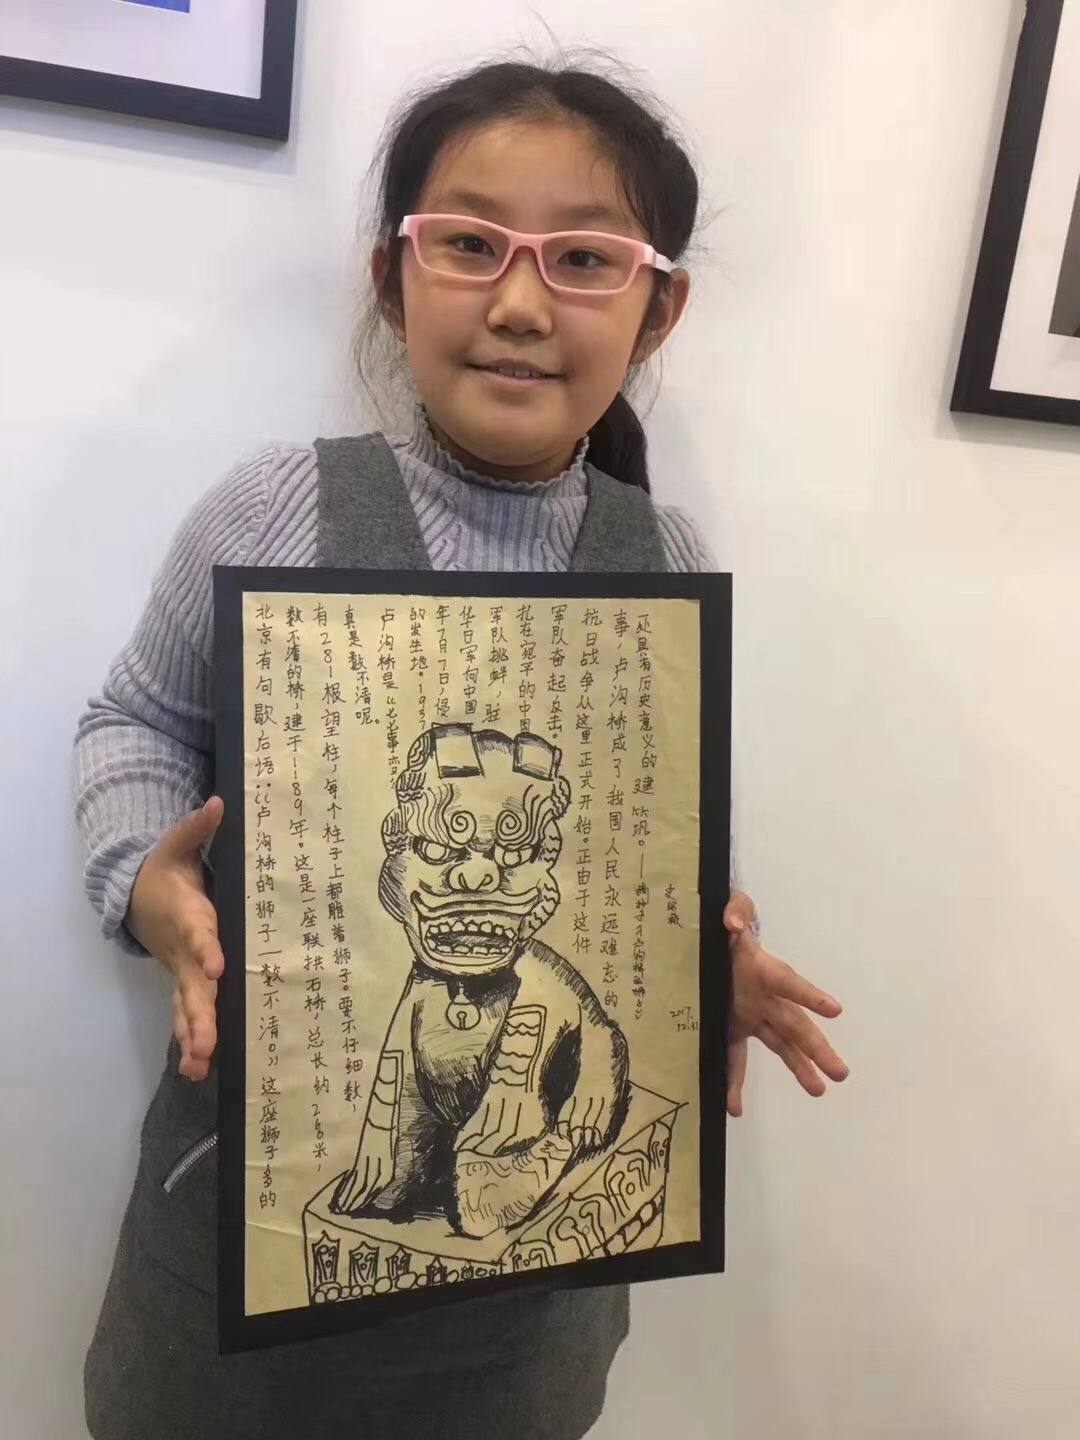 北京有句歇后语：“卢沟桥的狮子—数不清。”这座狮子多的
数不清的桥，建于1189年。这是一座联拱石桥，总长约26米，
有281根望柱，每个柱子上都雕着狮子。要不仔细数，
真是数不清呢。
卢沟桥是“七七事变”
的发生地。1937
年7月7日，侵
华日军向中国
军队挑衅，驻
扎在宛平的中国
军队奋起反击。
抗日战争从这里正式开始。正由于这件
事，卢沟桥成了我国人民永远难忘的
一处具有历史意义的建筑。——
2017.
12.31